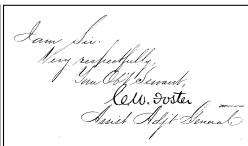 I am Sir.
Very respectfully,
Your Obt Servant,
C.W. Foster
Assist Adjt General